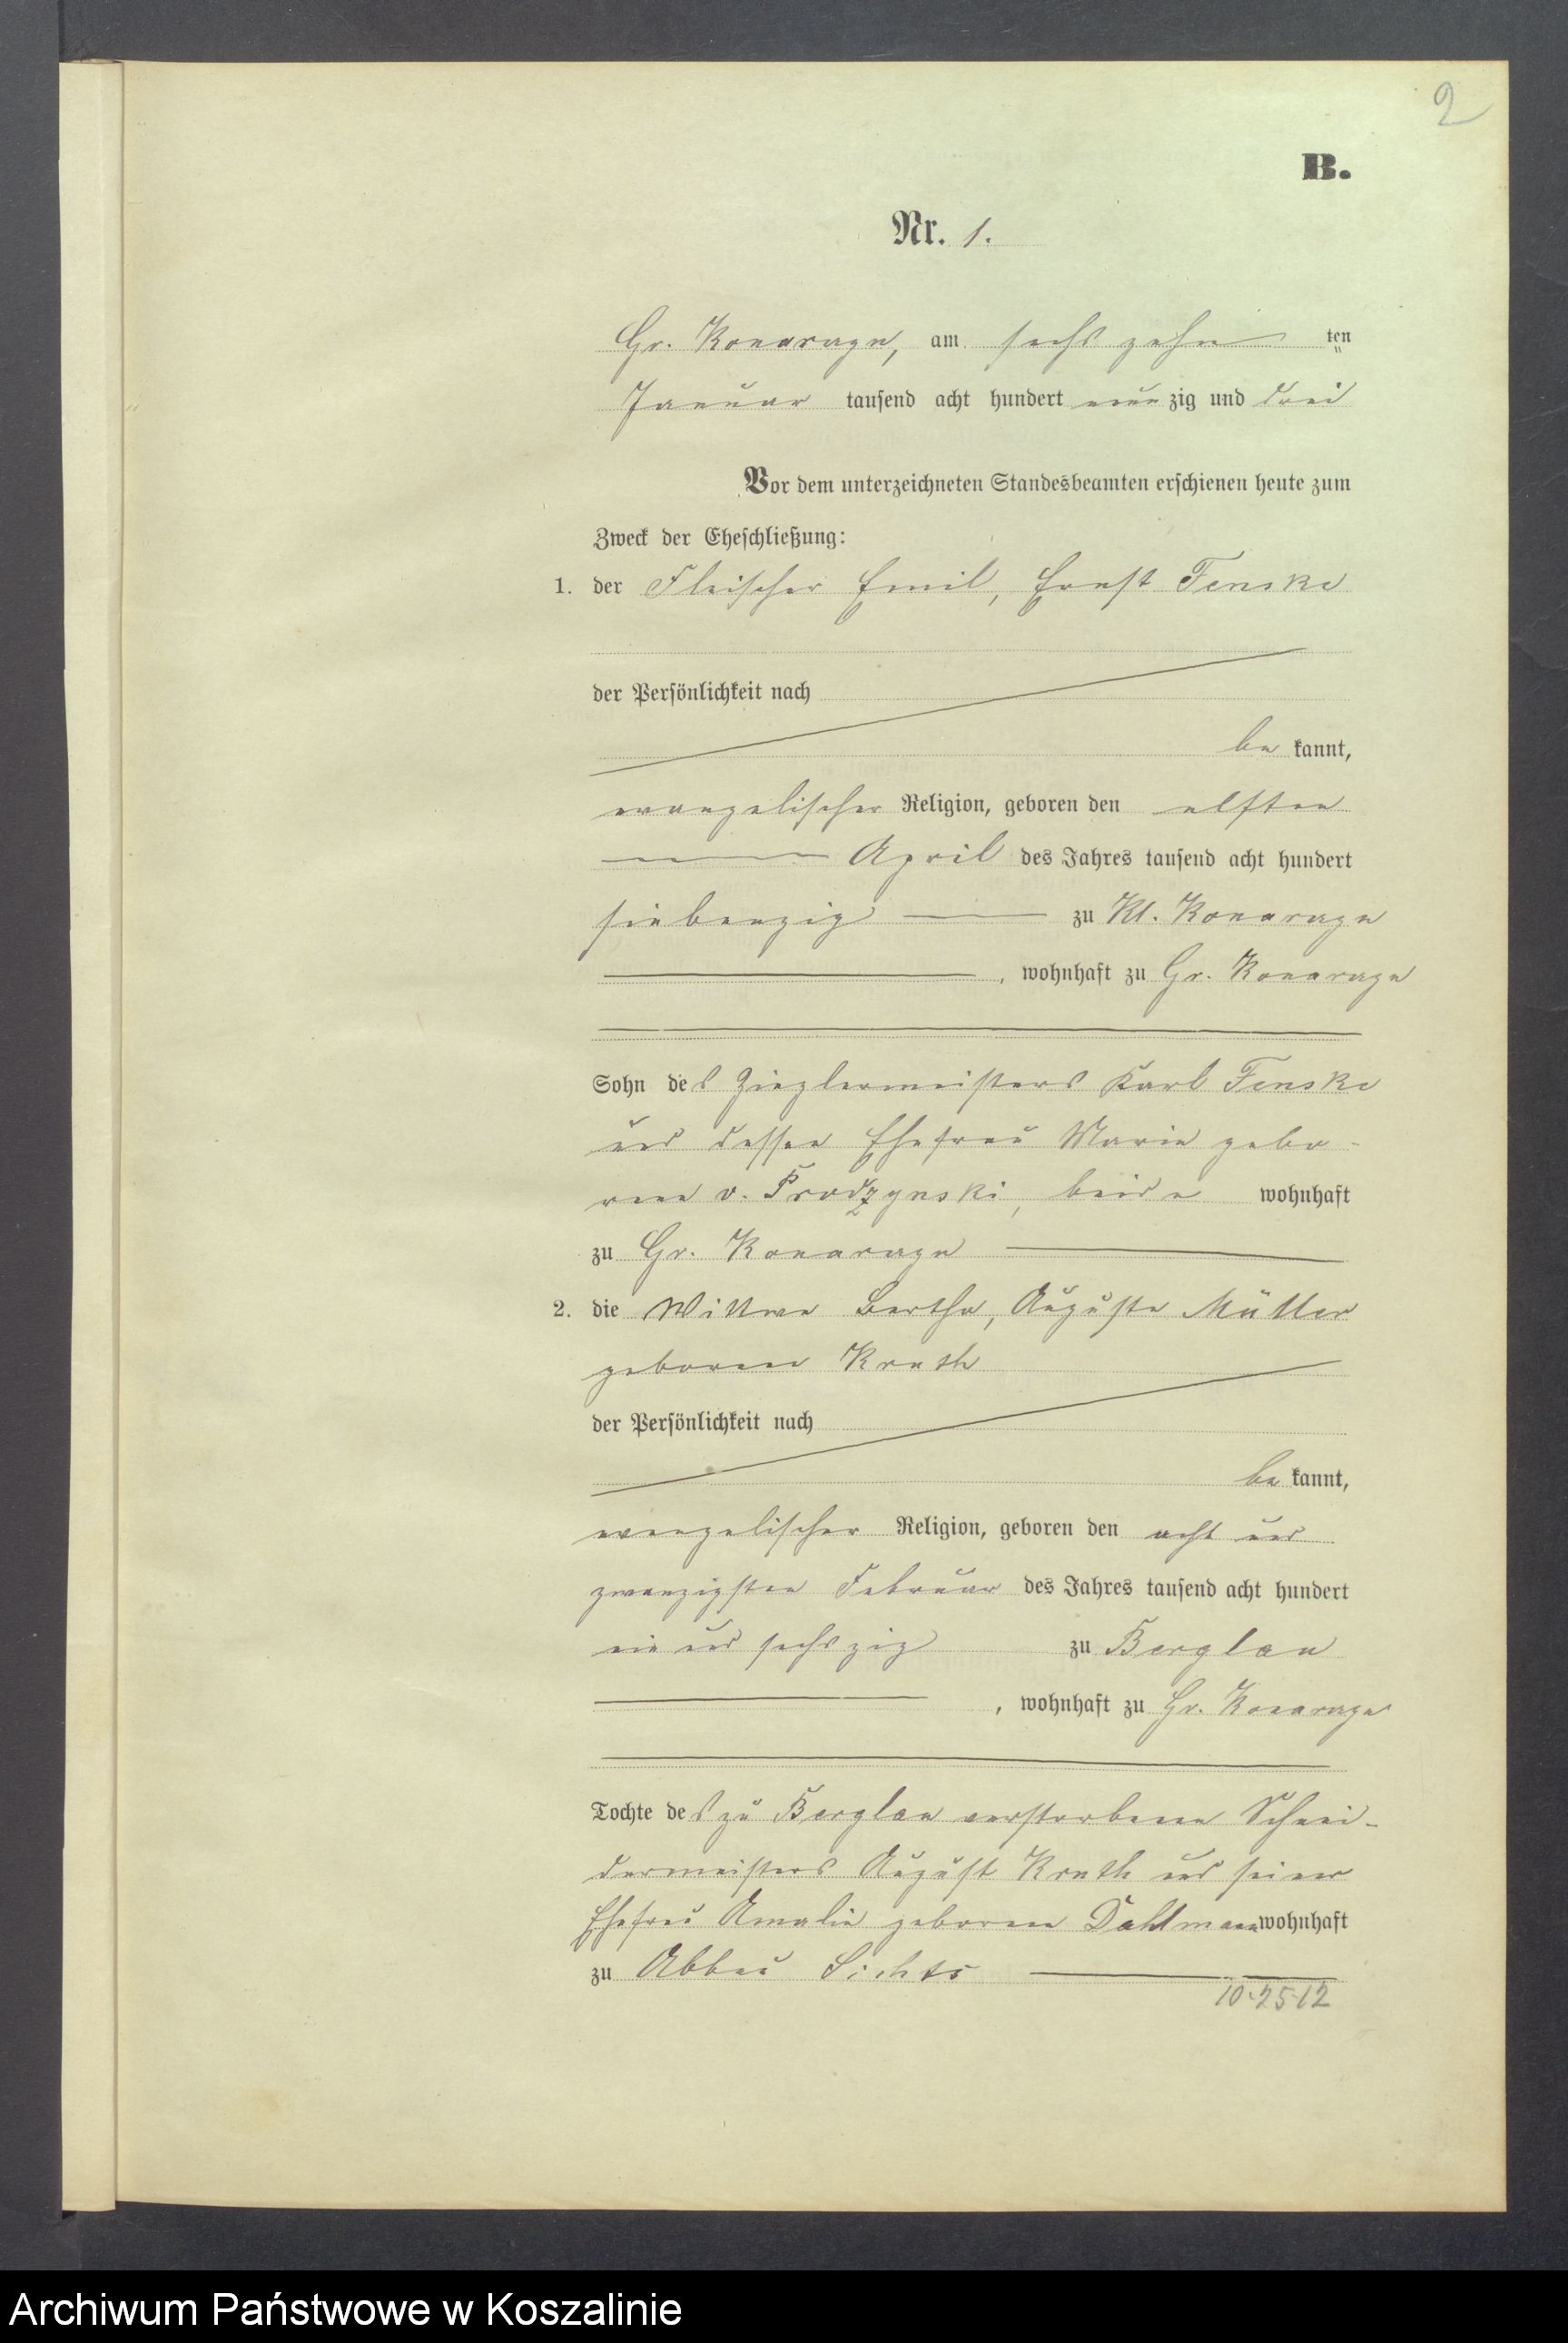 2
B.
Nr. 1.
Gr. Konarzyn, am sechszehn ten
Januar tausend acht hundert neun zig und drei
Vor dem unterzeichneten Standesbeamten erschienen heute zum
Zweck der Eheschließung:
1. der Fleischer Emil, Ernst Fenske
der Persönlichkeit nach
be kannt,
evangelischer Religion, geboren den elften
April des Jahres tausend acht hundert
siebenzig zu Kl. Konarzyn
, wohnhaft zu Gr. Konarzyn
Sohn des Zieglermeisters Karl Fenske
und dessen Ehefrau Marie gebo-
rene v. Prodzynski, beide wohnhaft
zu Gr. Konarzyn
2. die Wittwe Bertha, Auguste Müller
geborene Kruth
der Persönlichkeit nach
be kannt,
evangelischer Religion, geboren den acht und
zwanzigsten Februar des Jahres tausend acht hundert
ein und sechszig zu Berglau
, wohnhaft zu Gr. Konarzyn
Tochte des zu Berglau verstorbenen Schnei-
dermeisters August Kruth und seiner
Ehefrau Amalie geborene Dahlmann wohnhaft
zu Abbau Sichts
10.25.12
Archiwum Państwowe w Koszalinie